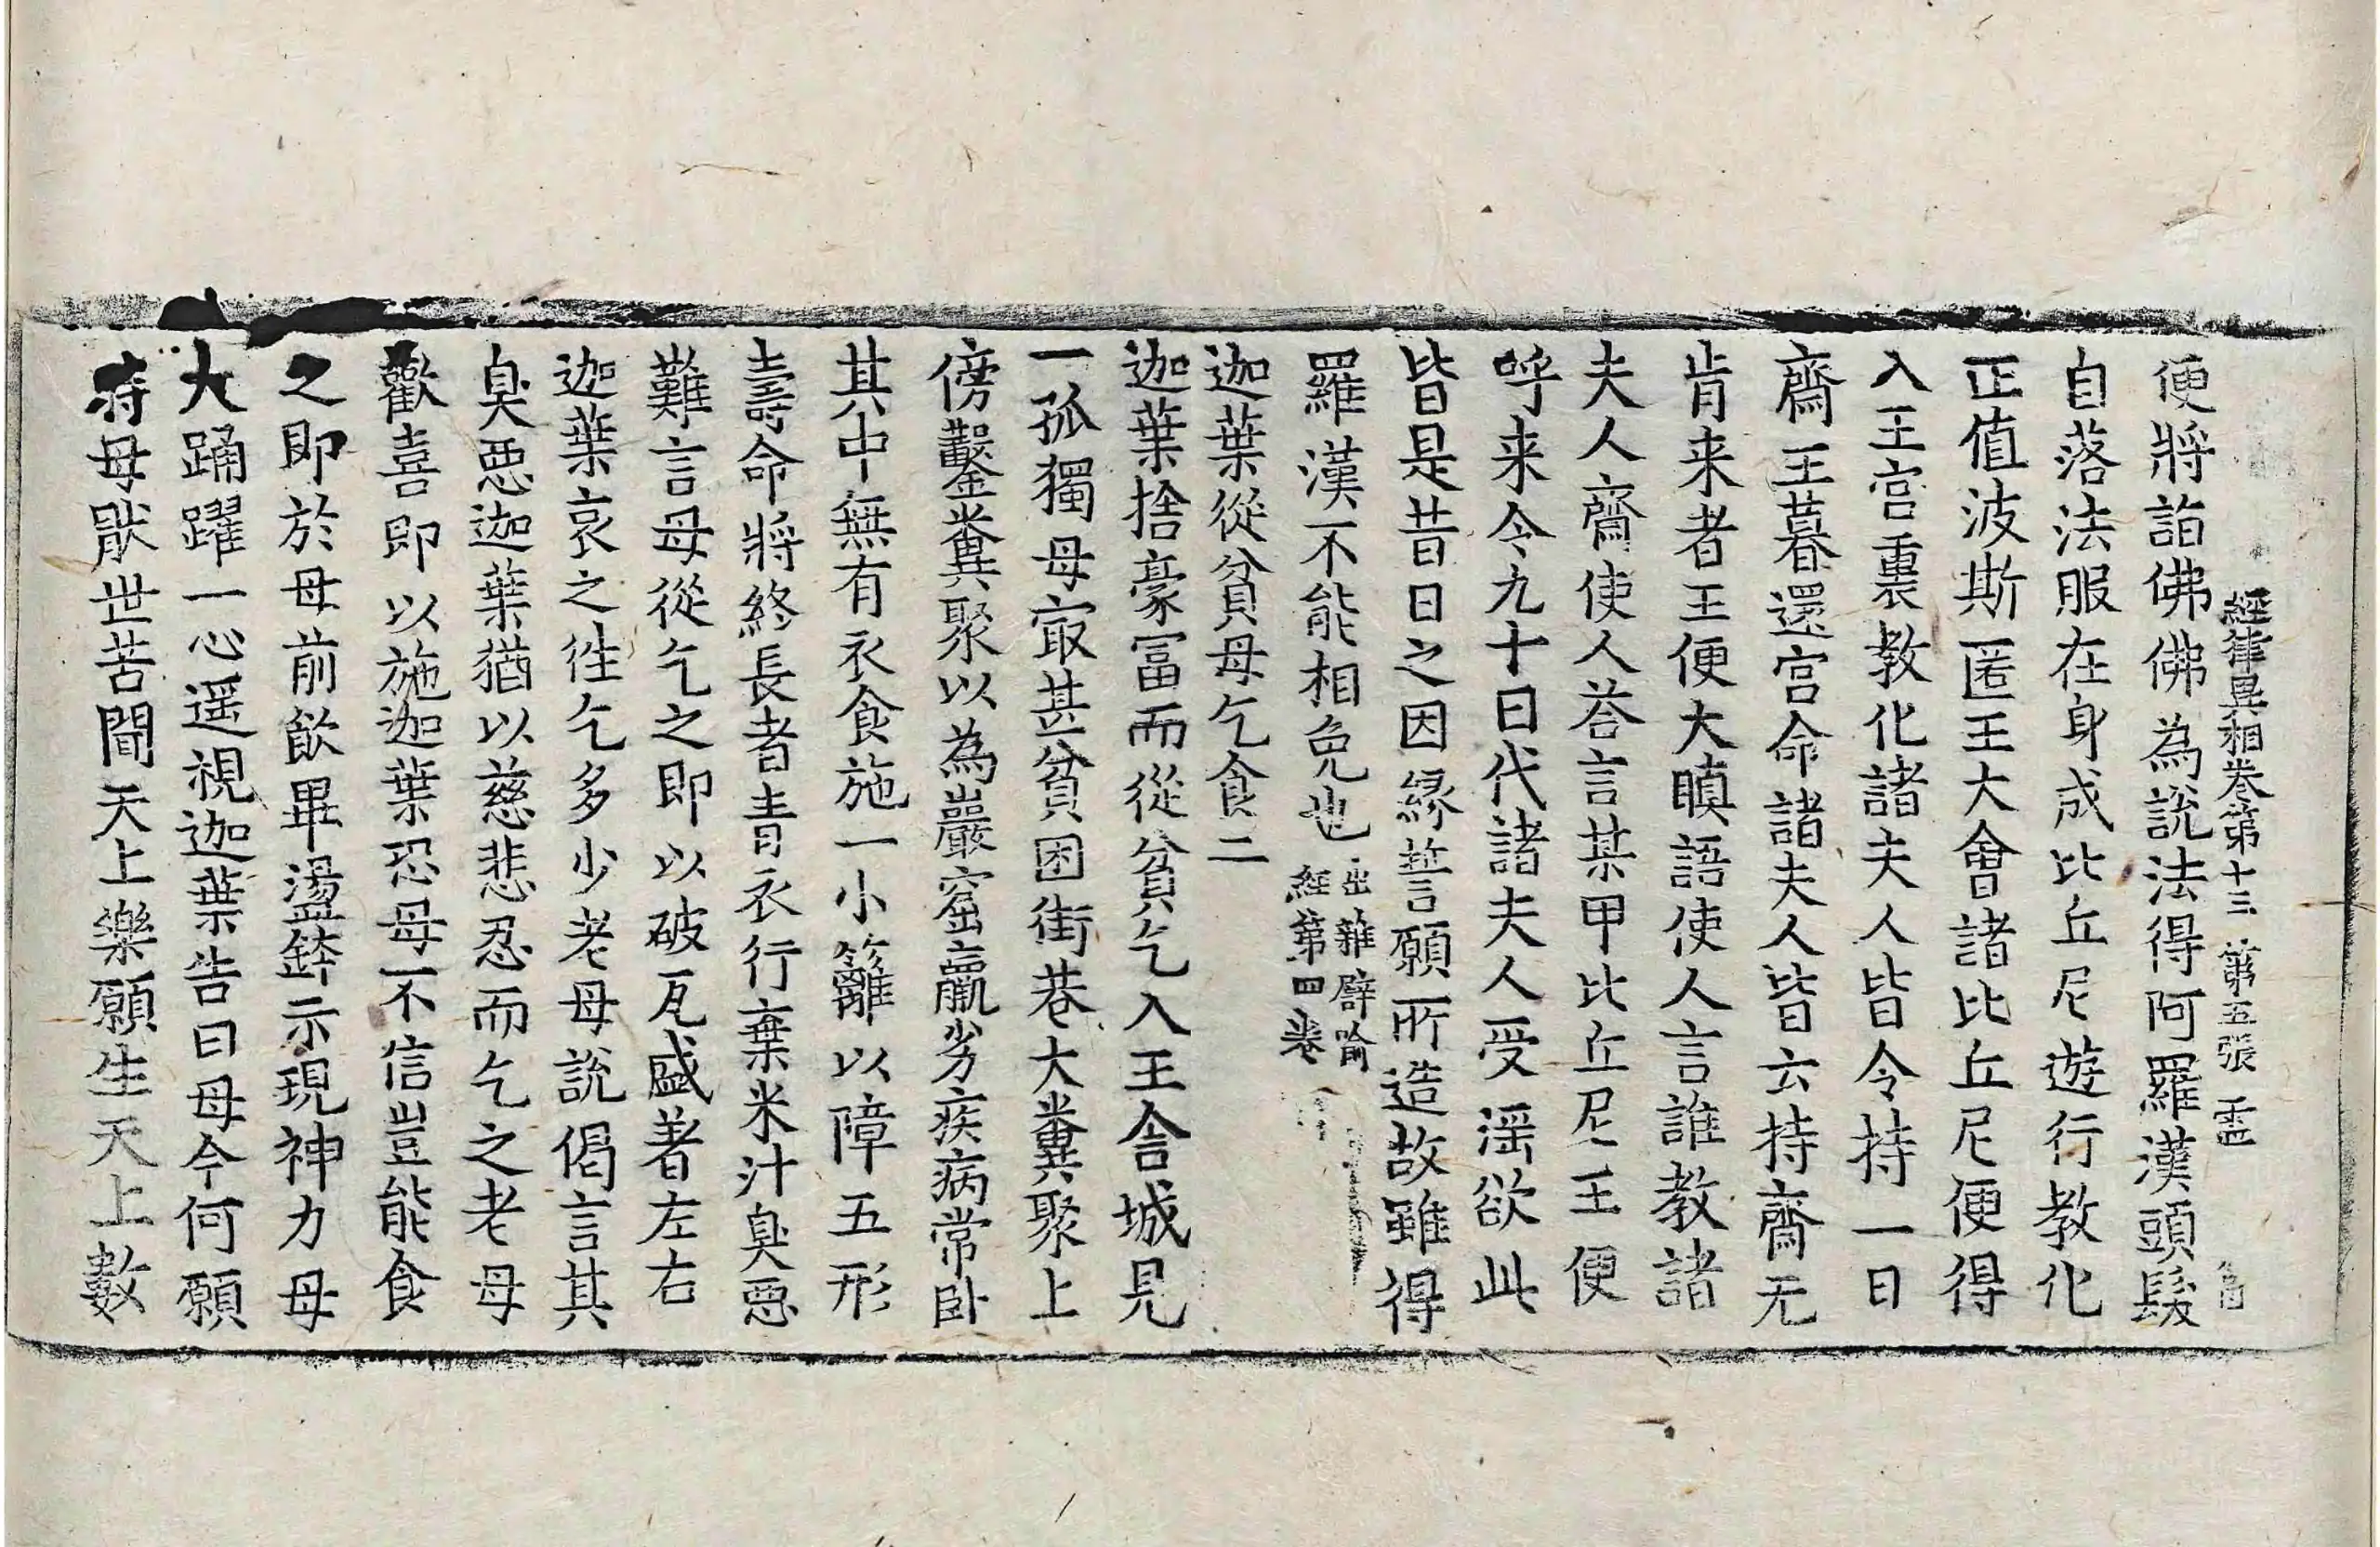 經律異相卷第十三 第五張 靈
便將詣佛佛為說法得阿羅漢頭髮
自落法服在身成比丘尼遊行教化
正值波斯匿王大會諸比丘尼便得
入王宮裏教化諸夫人皆令持一日
齋王暮還宮命諸夫人皆云持齋无
肯来者王便大瞋語使人言誰教諸
夫人齋使人荅言某甲比丘尼王便
呼来令九十日代諸夫人受婬欲此
皆是昔日之因緣誓言願所造故雖得
羅漢不能相免也出雜譬喻
經第四卷
迦葉從貧母乞食二
迦葉捨豪冨而從貧乞入王舍城見
一孤獨母㝡甚貧困街巷大糞聚上
傍鑿糞聚以為巖窟羸劣疾病常卧
其中無有衣食施一小籬以障五形
壽命將終長者青衣行棄米汁臭惡
難言母從乞之即以破瓦盛著左右
迦葉哀之徃乞多少老母說偈言其
臭惡迦葉猶以慈悲忍而乞之老母
歡喜即以施迦葉恐母不信豈能食
之即於母前飲畢盪鉢示現神力母
大踊躍一心遥視迦葉告曰母今何願
時母猒世苦聞天上樂願生天上數